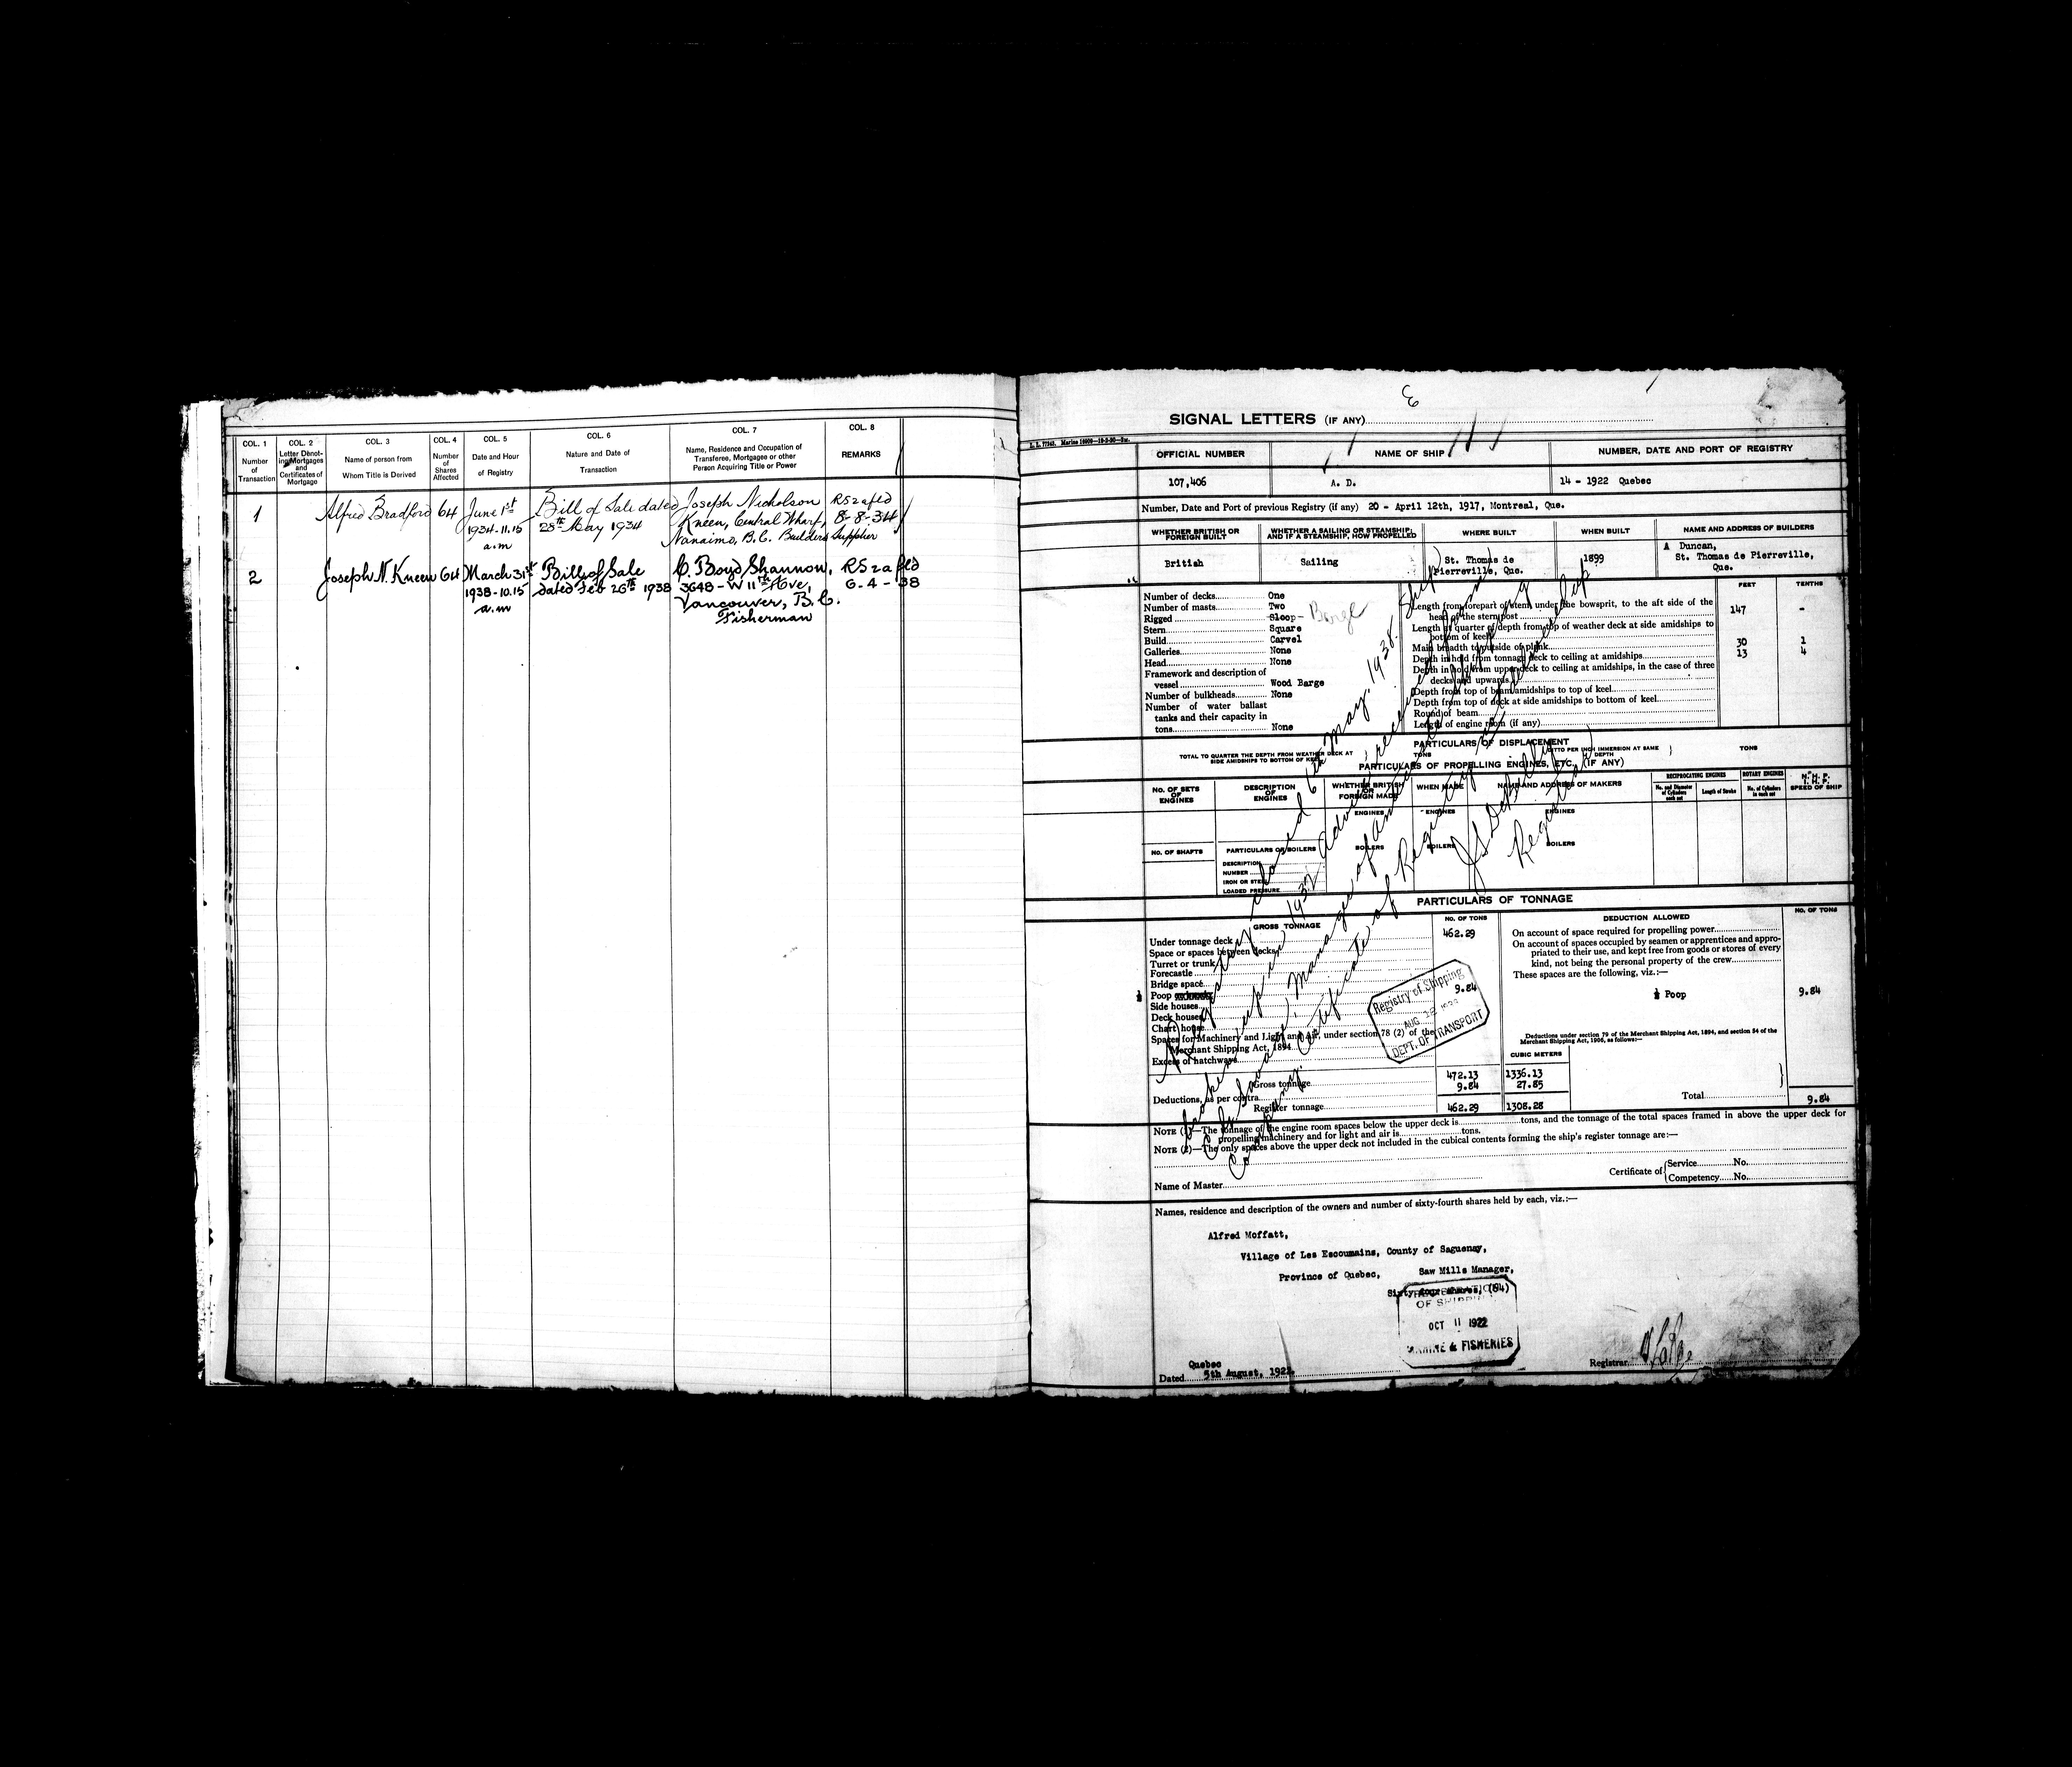 COL. 1
Number
of
Transaction
COL. 2
Letter Denot-
ing Mortgages
and
Certificates of
Mortgage
COL. 3
Name of person from
Whom Title is Derived
COL. 4
Number
of
Shares
Affected
COL. 5
Date and Hour
of Registry
COL. 6
Nature and Date of
Transaction
COL. 7
Name, Residence and Occupation of
Transferee, Mortgagee or other
Person Acquiring Title or Power
COL. 8
REMARKS
1 Alfred Bradford 64 June 1st Bill of Sale dated Joseph Nicholson RS2afld
1934-11.15 28th May 1934 Kneen, Central Wharf, 8-8-34
a.m Nanaimo, B.C. Builders Supplier
2 Joseph N. Kneen 64 March 31st Bill of Sale C. Boyd Shannon, RS2afld
1938-10.15 dated Feb 26th 1938 3648-W 11th Ave, 6-4-38
a.m Vancouver, B.C.
Fisherman
SIGNAL LETTERS (IF ANY)
OFFICIAL NUMBER NAME OF SHIP NUMBER, DATE AND PORT OF REGISTRY
107,406 A. D. 14 - 1922 Quebec
Number, Date and Port of previous Registry (if any) 20 - April 12th, 1917, Montreal, Que.
WHETHER BRITISH OR
FOREIGN BUILT
WHETHER A SAILING OR STEAMSHIP;
AND IF A STEAMSHIP, HOW PROPELLED
WHERE BUILT
WHEN BUILT
NAME AND ADDRESS OF BUILDERS
British
Sailing
St. Thomas de
Pierreville, Que.
1899
A Duncan,
St. Thomas de Pierreville,
Que.
FEET TENTHS
Number of decks One
Number of masts Two
Rigged Sloop - Barge
Stern Square
Build Carvel
Galleries None
Head None
Framework and description of
vessel Wood Barge
Number of bulkheads None
Number of water ballast
tanks and their capacity in
tons None
Length from forepart of stem, under the bowsprit, to the aft side of the
head of the sternpost 147 -
Length at quarter of depth from top of weather deck at side amidships to
bottom of keel
Main breadth to outside of plank 30 1
Depth in hold from tonnage deck to ceiling at amidships 13 4
Depth in hold from upper deck to ceiling at amidships, in the case of three
decks and upwards
Depth from top of beam amidships to top of keel
Depth from top of deck at side amidships to bottom of keel
Round of beam
Length of engine room (if any)
PARTICULARS OF DISPLACEMENT
TOTAL TO QUARTER THE DEPTH FROM WEATHER DECK AT
SIDE AMIDSHIPS TO BOTTOM OF KEEL
TONS
DITTO PER INCH IMMERSION AT SAME
DEPTH
TONS
PARTICULARS OF PROPELLING ENGINES, ETC., (IF ANY)
NO. OF SETS
OF
ENGINES
DESCRIPTION
OF
ENGINES
WHETHER BRITISH
OR
FOREIGN MADE
WHEN MADE
NAME AND ADDRESS OF MAKERS
RECIPROCATING ENGINES
No. and Diameter
of Cylinders
each set
Length of Stroke
ROTARY ENGINES
No. of Cylinders
in each set
SPEED OF SHIP
ENGINES ENGINES ENGINES
NO. OF SHAFTS
PARTICULARS OF BOILERS
BOILERS BOILERS BOILERS
DESCRIPTION
NUMBER
IRON OR STEEL
LOADED PRESSURE
PARTICULARS OF TONNAGE
GROSS TONNAGE
NO. OF TONS
Under tonnage deck 462.29
Space or spaces between decks
Turret or trunk
Forecastle
Bridge space
½ Poop 9.84
Side houses
Deck houses
Chart house
Spaces for Machinery and Light and Air, under section 78 (2) of the
Merchant Shipping Act, 1894
Excess of hatchways
Gross tonnage 472.13 1336.13
Deductions, as per contra 9.84 27.85
Register tonnage 462.29 1308.28
CUBIC METERS
DEDUCTION ALLOWED
NO. OF TONS
On account of space required for propelling power
On account of spaces occupied by seamen or apprentices and appro-
priated to their use, and kept free from goods or stores of every
kind, not being the personal property of the crew
These spaces are the following, viz.:—
½ Poop 9.84
Deductions under section 79 of the Merchant Shipping Act, 1894, and section 54 of the
Merchant Shipping Act, 1906, as follows:—
Total 9.84
Registry of Shipping
DEPT. OF TRANSPORT
NOTE (1)—The tonnage of the engine room spaces below the upper deck is tons, and the tonnage of the total spaces framed in above the upper deck for
propelling machinery and for light and air is tons.
NOTE (2)—The only spaces above the upper deck not included in the cubical contents forming the ship's register tonnage are:—
Name of Master
Certificate of
Service No.
Competency No.
Names, residence and description of the owners and number of sixty-fourth shares held by each, viz.:—
Alfred Moffatt,
Village of Les Escoumains, County of Saguenay,
Province of Quebec, Saw Mills Manager,
Sixty four shares, (64)
OF SHIPPING
OCT 11 1922
MARINE & FISHERIES
Quebec
Dated 5th August, 1922
Registrar
Registry closed 6th May. 1938. Ship
broken up in 1932 Advice received from
Manager of
Company. Certificate of Registry
Registrar